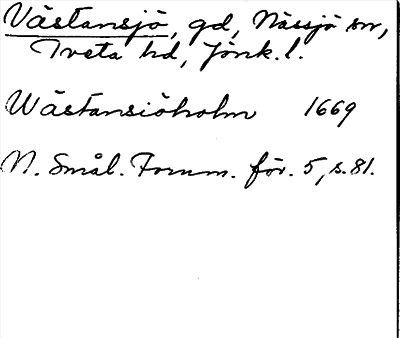 Västansjö, gd, Nässjö sn,
Tveta hd, Jönk. l.
Wästansiöholm 1669
N. Smål. Fornm. för. 5, s. 81.